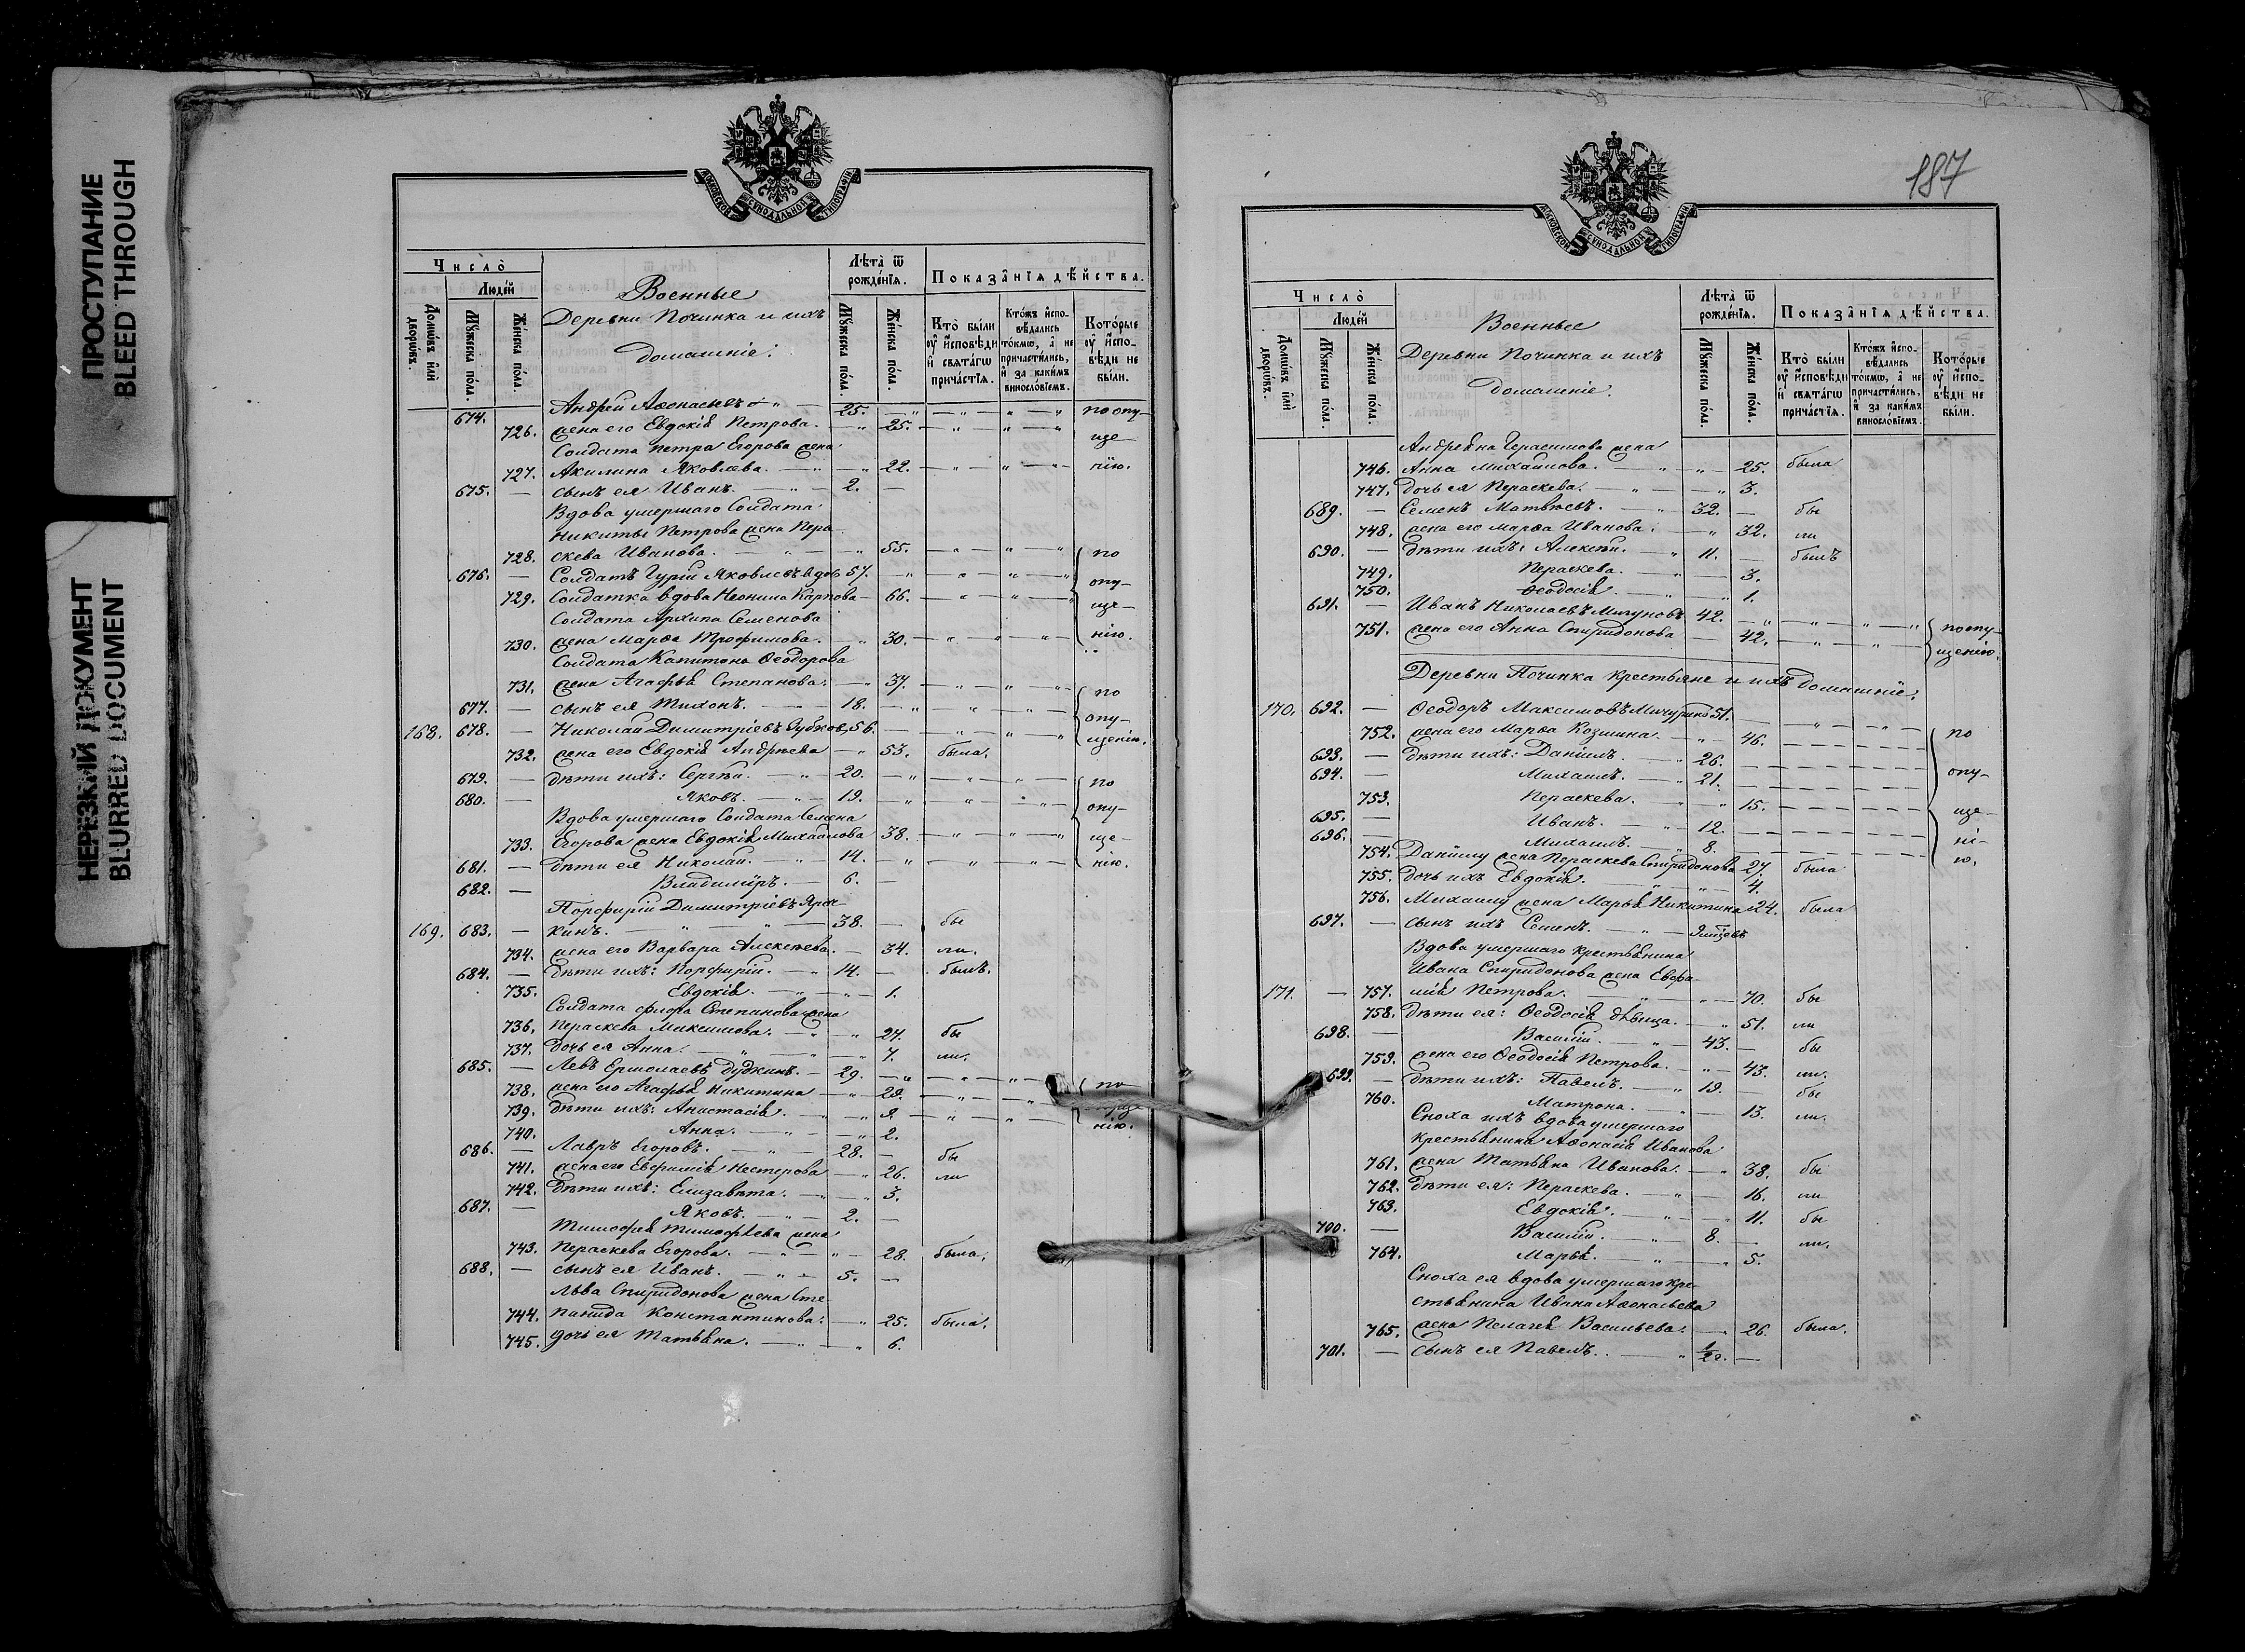 ПРОСТУПАНИЕ
BLEED THROUGH
НЕРЕЗКИЙ ДОКУМЕНТ
BLURRED DOCUMENT
МОСКОВСКОЙ СѴНОДАЛЬНОЙ ТИПОГРАФІИ
Число̀
Людей
Домѡвъ и҆лѝ дворѡвъ.
Мꙋжеска пола.
Женска пола.
Военные
Деревни Починка и ихъ
домашніе:
Лѣта̀ ѿ рожденїѧ.
Мꙋжеска пола.
Женска пола.
Показанїѧ дѣйства.
Кто̀ были ᲂу҆ и҆сповѣди и҆ свѧтагѡ причастїѧ.
Ктожъ и҆сповѣдались токмѡ, а҆ не причастились, и҆ за какимъ винословїемъ.
Которые ᲂу҆ и҆сповѣди не были.
674. Андрей Аѳонасьевъ 25. по опу-
726. жена его Евдокія Петрова. 25. ще-
Солдата Петра Егорова жена
727. Акилина Яковлева. 22. нію.
675. — сынъ ея Иванъ. 2. —
Вдова умершаго Солдата
Никиты Петрова жена Пера-
728. скева Иванова. 55. по
676. — Солдатъ Гурій Яковлевъ вдов. 57. опу-
729. Солдатка вдова Неонила Карпова 66. ще-
Солдата Архипа Семенова
730. жена Марѳа Трофимова. 30. нію.
Солдата Капитона Ѳеодорова
731. жена Агафья Степанова. 37. по
677. — сынъ ея Тихонъ. 18. опу-
168. 678. — Николай Димитріевъ Зубков, 56. щенію.
732. жена его Евдокія Андреева 53. была.
679. — дѣти ихъ: Сергѣй. 20. по
680. — Яковъ. 19. опу-
Вдова умершаго Солдата Семена
733. Егорова жена Евдокія Михайлова 38. ще-
681. — дѣти ея Николай. 14. нію.
682. — Владиміръ. 6. —
Порфирій Димитріевъ Яроч-
169. 683. — кинъ. 38. — бы
734. жена его Варвара Алексѣева. 34. ли.
684. — дѣти ихъ: Порфирій. 14. — былъ.
735. Евдокія. 1.
Солдата Флора Степанова жена
736. Пераскева Максимова. 27. бы
737. дочь ея Анна. 7. ли.
685. — Левъ Ермолаевъ Дудкинъ. 29. по
738. жена его Агафья Никитина 29.
739. дѣти ихъ: Анастасія. нію.
740. Анна. 2.
686. — Лавръ Егоровъ. 28. — бы
741. жена его Евфимія Нестерова 26. ли
742. дѣти ихъ: Елизавета. 3.
687. — Яковъ. 2. —
Тимофея Тимофѣева жена
743. Пераскева Егорова. 28. была.
688. — сынъ ея Иванъ. 5. —
Льва Спиридонова жена Сте-
744. панида Константинова. 25. была.
745. дочь ея Татьяна. 6.
187
МОСКОВСКОЙ СѴНОДАЛЬНОЙ ТИПОГРАФІИ
Число̀
Людей
Домѡвъ и҆лѝ дворѡвъ.
Мꙋжеска пола.
Женска пола.
Военные
Деревни Починка и ихъ
домашніе.
Лѣта̀ ѿ рожденїѧ.
Мꙋжеска пола.
Женска пола.
Показанїѧ дѣйства.
Кто̀ были ᲂу҆ и҆сповѣди и҆ свѧтагѡ причастїѧ.
Ктожъ и҆сповѣдались токмѡ, а҆ не причастились, и҆ за какимъ винословїемъ.
Которые ᲂу҆ и҆сповѣди не были.
Андреяна Герасимова жена
746. Анна Михайлова. 25. была
747. дочь ея Пераскева. 3.
689. — Семенъ Матвѣевъ. 32. — бы
748. жена его Марѳа Иванова. 32. ли
690. — дѣти ихъ: Алексѣй. 11. — былъ
749. Пераскева. 3.
750. Ѳеодосія. 1.
691. — Иванъ Николаевъ 42. по опу-
751. жена его Анна Спиридонова 42. щенію.
Деревни Починка крестьяне и ихъ домашніе.
170. 692. — Ѳеодоръ Максимовъ Мичуринъ 51.
752. жена его Марѳа Козмина. 46. по
693. — дѣти ихъ: Даніилъ. 26.
694. — Михаилъ. 21. опу-
753. Пераскева. 15.
695. — Иванъ. 12. ще-
696. — Михаилъ. 8. ні-
754. Даніилу жена Пераскева Спиридонова 27. была ю.
755. дочь ихъ Евдокія. 4.
756. Михаилу жена Марья Никитина 24. была
697. — сынъ ихъ Семенъ.
Вдова умершаго крестьянина
Ивана Спиридонова жена Евфи-
171. — 757. мія Петрова. 70. бы
758. дѣти ея: Ѳеодосія дѣвица. 51. ли
698. — Василій. 43. — бы
759. жена его Ѳеодосія Петрова. 43. ли.
699. — дѣти ихъ: Павелъ. 19. — бы
760. Матрона. 13. ли.
Сноха ихъ вдова умершаго
крестьянина Аѳонасія Иванова
761. жена Татьяна Иванова. 38. бы
762. дѣти ея: Пераскева. 16. ли
763. Евдокія. 11. бы
700. — Василій. 8. — ли.
764. Марья. 5.
Сноха ея вдова умершаго кре-
стьянина Ивана Аѳонасьева
765. жена Пелагея Васильева. 26. была.
701. — сынъ ея Павелъ. 1/2 г. —